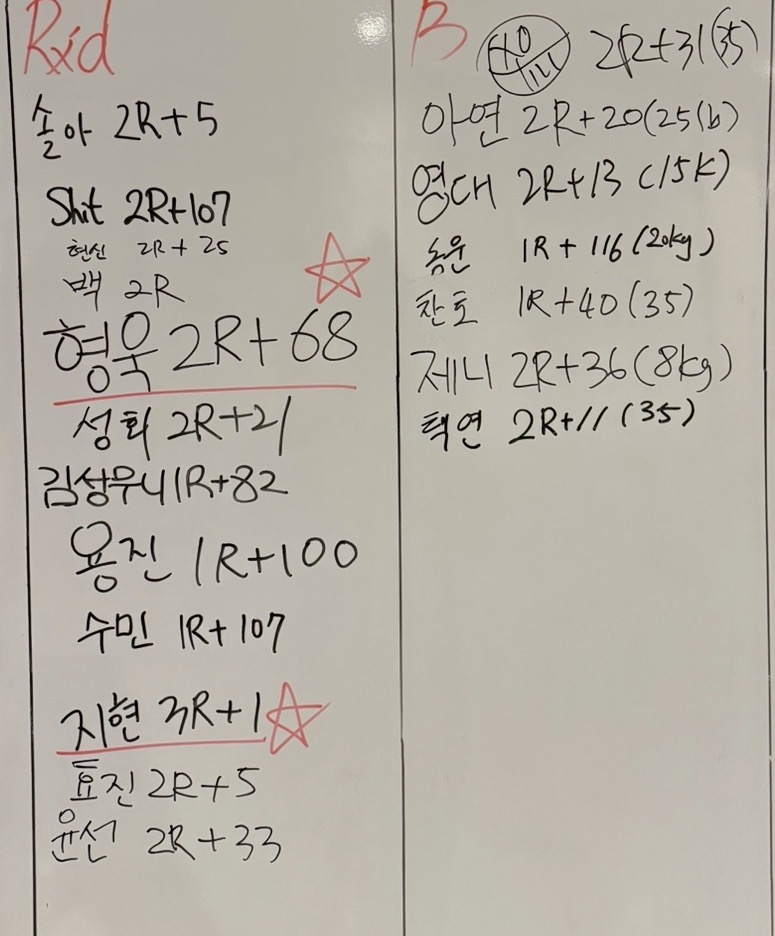 Rxd
솔아 2R+5
Shit 2R+107
현신 2R+25
백 2R
형욱 2R+68
성회 2R+21
김상우니 1R+82
용진 1R+100
수민 1R+107
지현 3R+1
효진 2R+5
윤선 2R+33
B
2R+31(35)
아연 2R+20(25lb)
영대 2R+13 (15K)
1R+116(20kg)
찬호 1R+40(35)
제니 2R+36(8kg)
택연 2R+11(35)